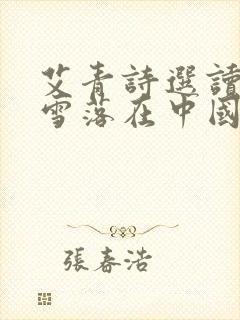 艾青詩選讀
雪落在中國
張春浩